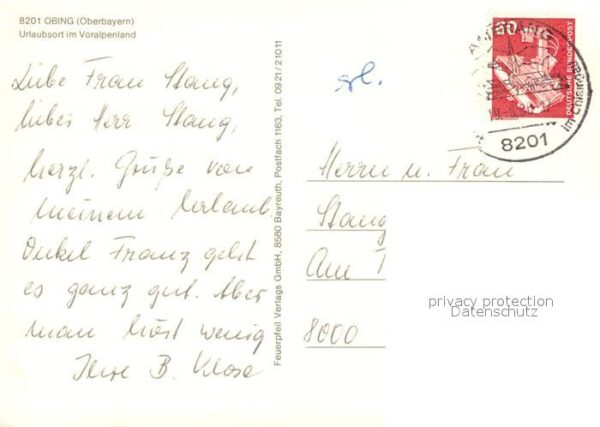 8201 OBING (Oberbayern)
Urlaubsort im Voralpenland
Liebe Frau Stang,
lieber Herr Stang,
herzl. Grüße von
meinem Urlaub.
Onkel Franz geht
es ganz gut. Aber
man hört wenig
Ihre B. Klose
Feuerpfeil Verlags GmbH, 8580 Bayreuth, Postfach 1163, Tel. 09 21 / 2 10 11
gel.
60
DEUTSCHE BUNDESPOST
AMERANG
8201
im Chiemgau
Herrn u. Frau
Stang
Am
8000
privacy protection
Datenschutz